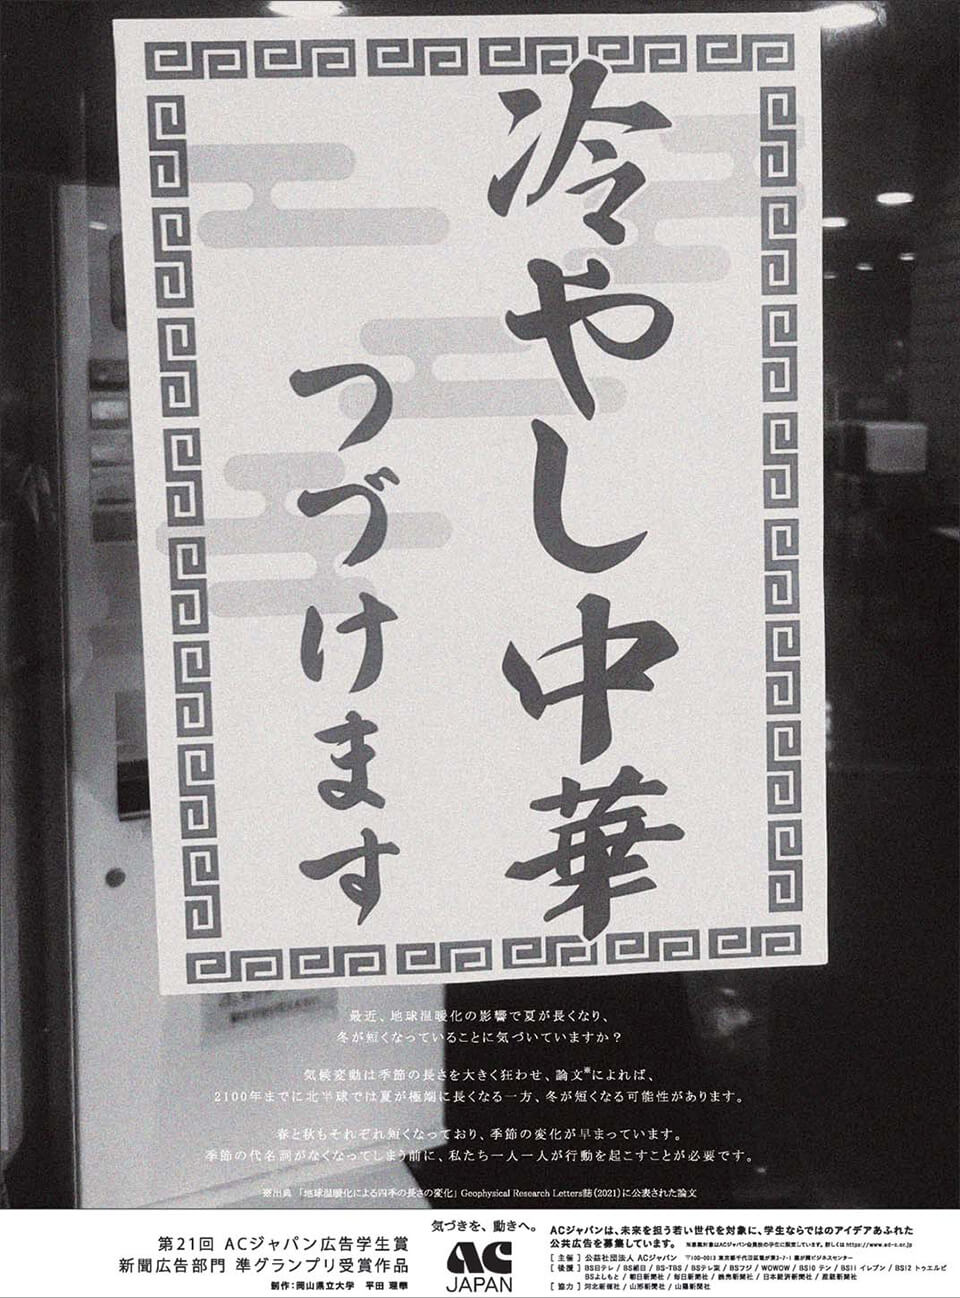 冷やし中華
つづけます
最近、地球温暖化の影響で夏が長くなり、
冬が短くなっていることに気づいていますか？
気候変動は季節の長さを大きく狂わせ、論文※によれば、
2100年までに北半球では夏が極端に長くなる一方、冬が短くなる可能性があります。
春と秋もそれぞれ短くなっており、季節の変化が早まっています。
季節の代名詞がなくなってしまう前に、私たち一人一人が行動を起こすことが必要です。
※出典 「地球温暖化による四季の長さの変化」Geophysical Research Letters誌（2021）に公表された論文
第21回 ACジャパン広告学生賞
新聞広告部門 準グランプリ受賞作品
制作：岡山県立大学 平田 理華
気づきを、動きへ。
AC
JAPAN
ACジャパンは、未来を担う若い世代を対象に、学生ならではのアイデアあふれた
公共広告を募集しています。 ※応募対象はACジャパン会員校の学生に限定しています。詳しくは https://www.ad-c.or.jp
［ 主催 ］ 公益社団法人 ACジャパン 〒100-0013 東京都千代田区霞が関3-7-1 霞が関ビジネスセンター
［ 後援 ］ BS日テレ / BS朝日 / BS-TBS / BSテレ東 / BSフジ / WOWOW / BS10 テン / BS11 イレブン / BS12 トゥエルビ
BSよしもと / 朝日新聞社 / 毎日新聞社 / 読売新聞社 / 日本経済新聞社 / 産経新聞社
［ 協力 ］ 河北新報社 / 山形新聞社 / 山陽新聞社